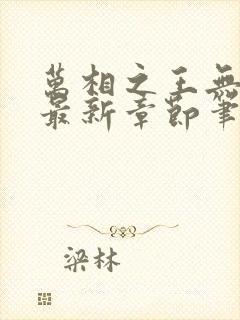 萬相之王無
最新章節筆
梁林